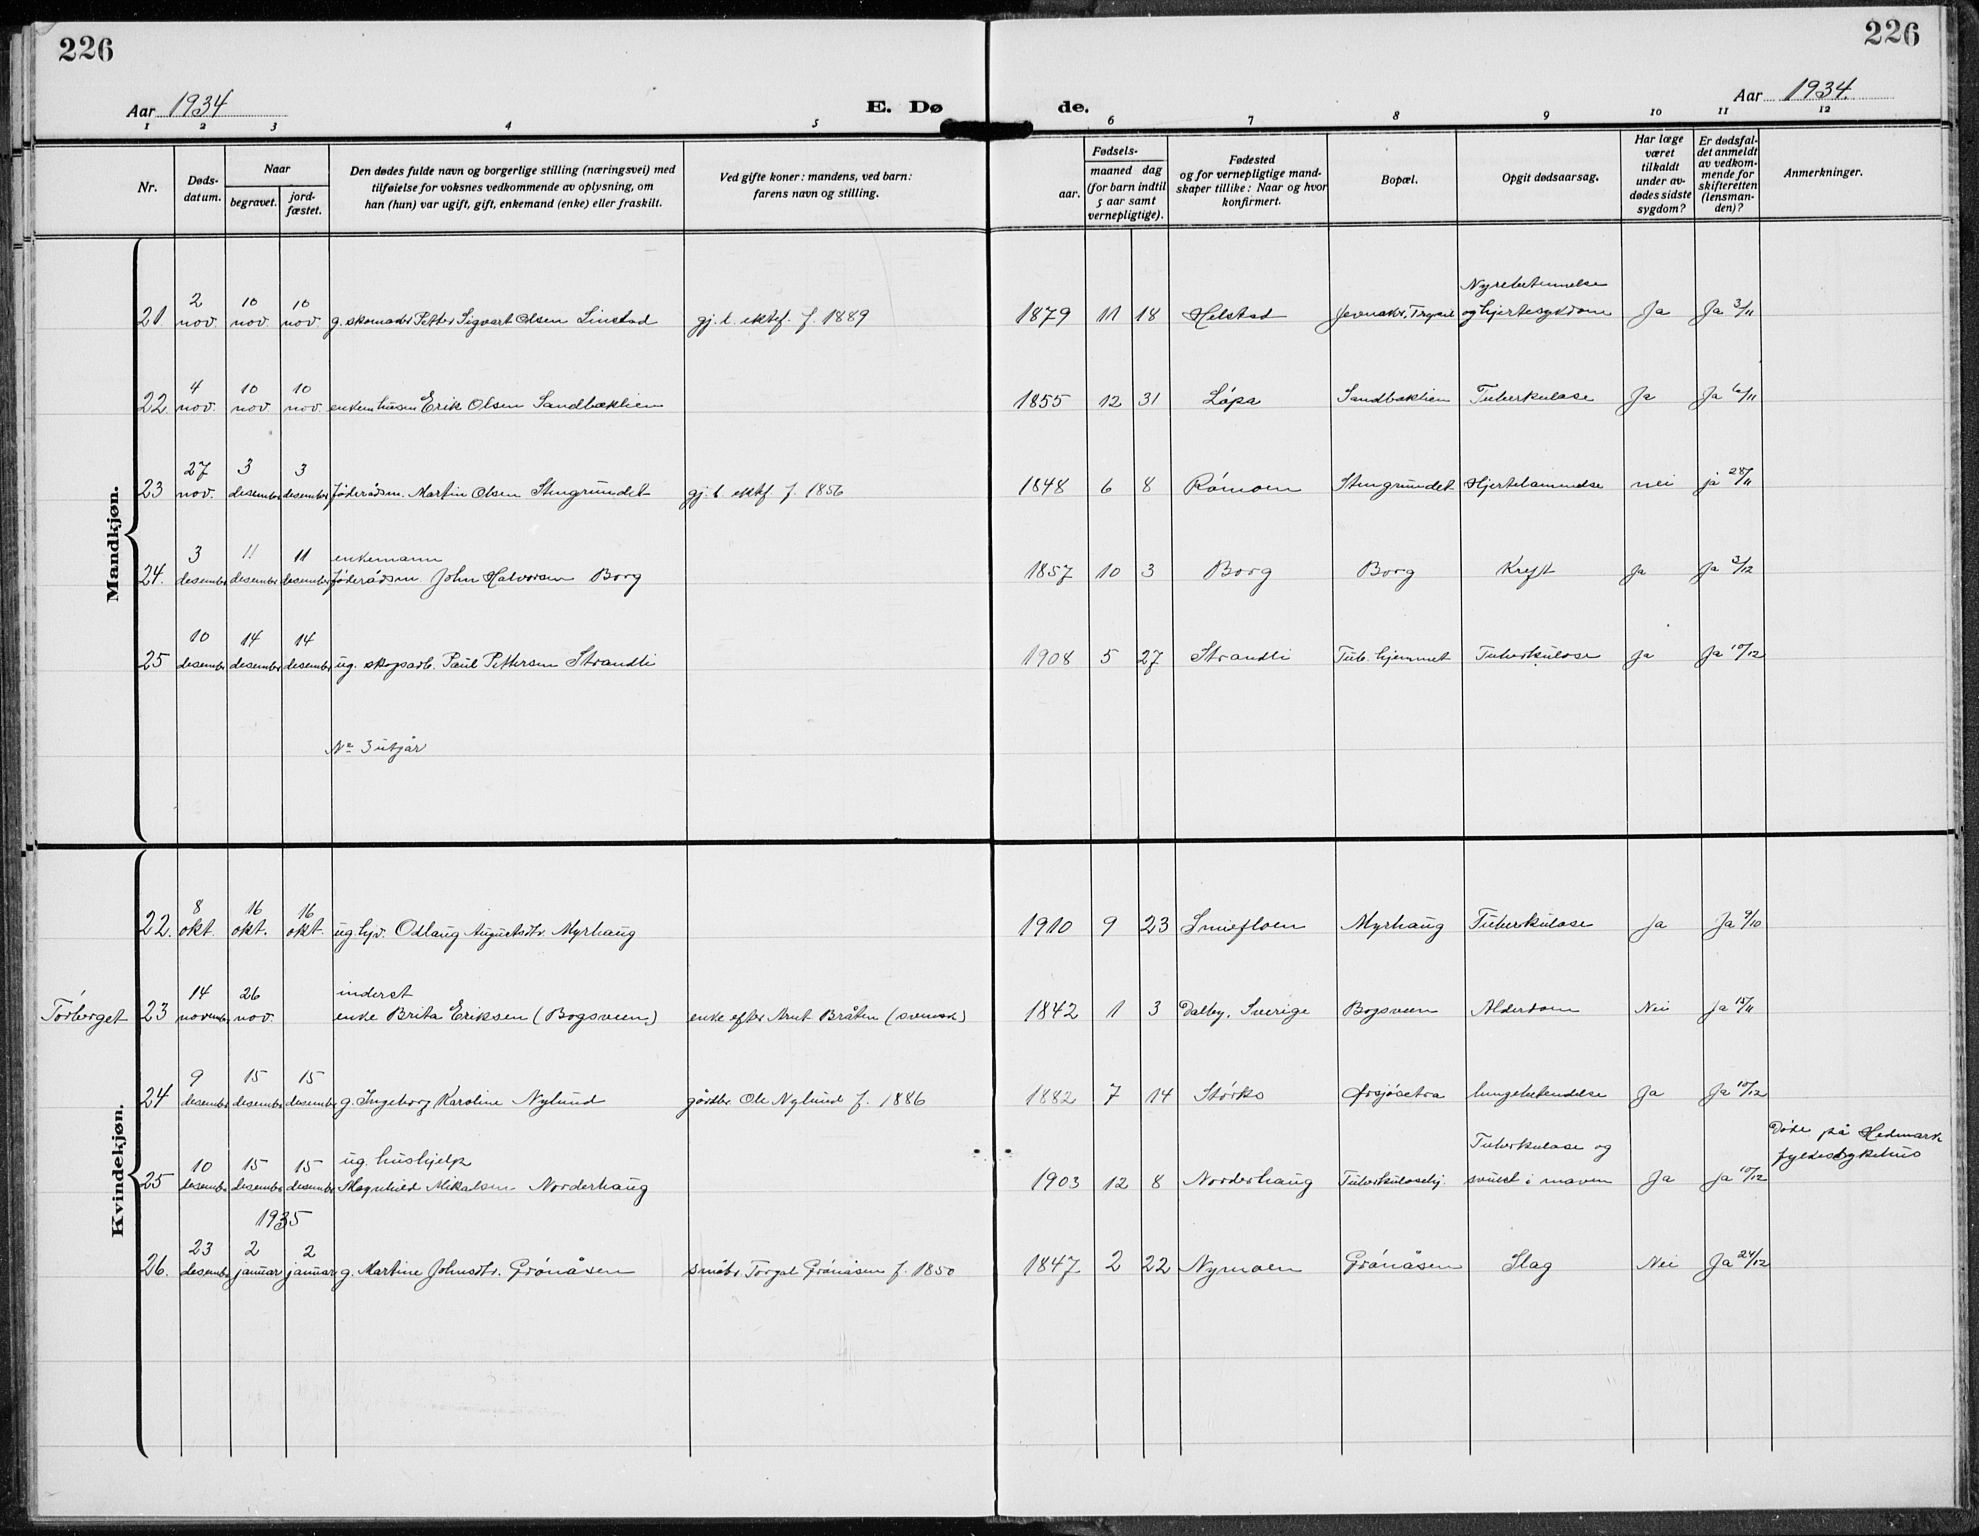 226
226
Aar 1934
E. Dø
de.
Aar 1934.
1 2 3 4 5 6 7 8 9 10 11 12
Nr.
Døds-
datum.
Naar
begravet.
jord-
fæstet.
Den dødes fulde navn og borgerlige stilling (næringsvei) med
tilføielse for voksnes vedkommende av oplysning, om
han (hun) var ugift, gift, enkemand (enke) eller fraskilt.
Ved gifte koner: mandens, ved barn:
farens navn og stilling.
Fødsels-
aar.
maaned dag
(for barn indtil
5 aar samt
vernepligtige).
Fødested
og for vernepligtige mand-
skaper tillike: Naar og hvor
konfirmert.
Bopæl.
Opgit dødsaarsag.
Har læge
været
tilkaldt
under av-
dødes sidste
sygdom?
Er dødsfal-
det anmeldt
av vedkom-
mende for
skifteretten
(lensman-
den)?
Anmerkninger.
Mandkjøn.
2 10 10 Nyrebetennelse
21. nov. nov. nov. g. skomaker Petter Sigvart Olsen Linstad gj. l. ektef. f. 1889 1879 11 18 Helstad Trysil og hjertesykdom Ja Ja 3/11
4 10 10
22. nov. nov. nov. Erik Olsen Sandbæklien 1855 12 31 Løpa Sandbæklien Tuberkulose Ja Ja 6/11
27 3 3
23 nov. desember desember føderådsm. Martin Olsen Stengrundet gj. l. ektf. f. 1856 1848 6 8 Rømoen Stengrundet Hjertelammelse nei ja 28/11
3 11 11 enkemann
24. desember desember desember føderådsm. John Halvorsen Borg 1857 10 3 Borg Borg Kreft Ja Ja 3/12
10 14 14
25 desember desember desember ug. skogsarb. Paul Pettersen Strandli 1908 5 27 Strandli Tub. hjemmet Tuberkulose Ja Ja 10/12
No 3 utgår
Kvindekjøn.
8 16 16
22. okt. okt. okt. ug. hjv. Odlaug Augustsdtr. Myrhaug 1910 9 23 Smiefloen Myrhaug Tuberkulose Ja Ja 9/10
14 26 inderst
Törberget 23 november nov. enke Brita Eriksen (Bogsveen) enke efter Arnt Bråten (svensk) 1842 1 3 Dalby, Sverige Bogsveen Alderdom Nei Ja 15/11
9 15 15
24 desember desember desember g. Ingeborg Karoline Nylund gårdbr. Ole Nylund f. 1886 1882 7 14 Störks Ørsjøsetra lungebetendelse Ja Ja 10/12
10 15 15 ug. hushjelp Tuberkulose og Døde på Hedmark
25 desember desember desember Magnhild Mikalsen Norderhaug 1903 12 8 Norderhaug Tuberkulosehj. svulst i maven Ja Ja 10/12 fylkessykehus
1935
23 2 2
26. desember januar januar g. Martine Johnsdtr. Grönåsen småbr. Torgal Grönåsen f. 1850 1847 2 22 Nymoen Grönåsen Slag Nei Ja 24/12